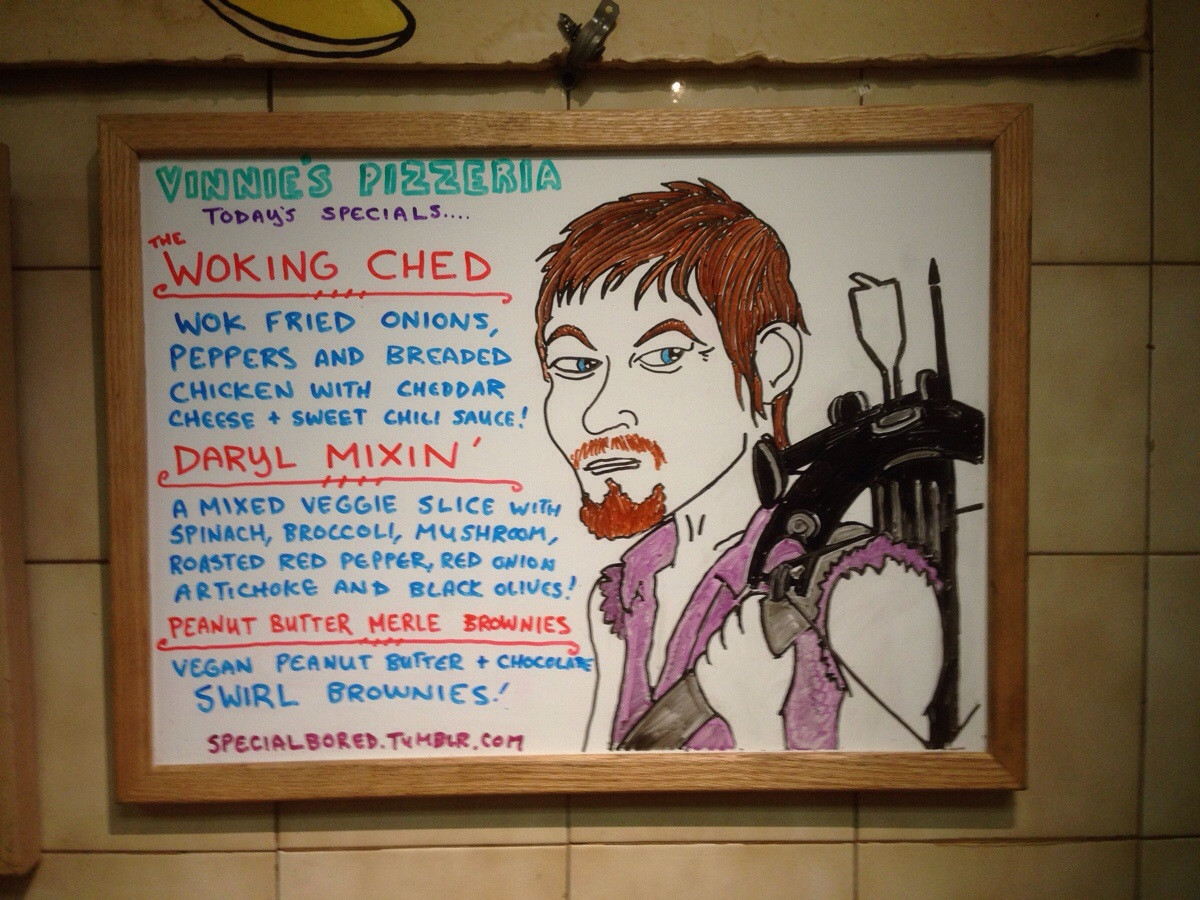 VINNIE'S PIZZERIA
TODAY'S SPECIALS....
THE
WOKING CHED
WOK FRIED ONIONS,
PEPPERS AND BREADED
CHICKEN WITH CHEDDAR
CHEESE + SWEET CHILI SAUCE!
DARYL MIXIN'
A MIXED VEGGIE SLICE WITH
SPINACH, BROCCOLI, MUSHROOM,
ROASTED RED PEPPER, RED ONION
ARTICHOKE AND BLACK OLIVES!
PEANUT BUTTER MERLE BROWNIES
VEGAN PEANUT BUTTER + CHOCOLATE
SWIRL BROWNIES!
SPECIALBORED.TUMBLR.COM